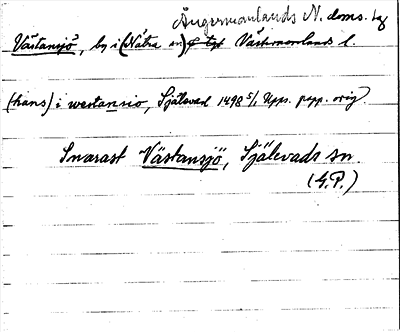 Ångermanlands N. doms. tg
Västansjö, by i (Nätra sn) Västernorrlands l.
(hans) i westansio, Själevad 1498 5/1 Upps. papp. orig.
Snarast Västansjö, Själevads sn.
(G.P.)